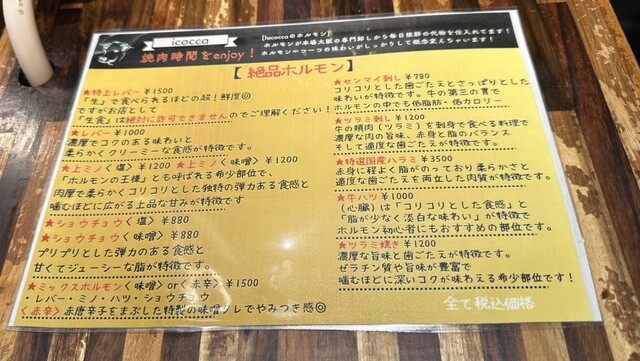 icocca
焼肉時間をenjoy！
【Iacoccaのホルモン】
ホルモンが本場大阪の専門卸しから毎日抜群の代物を仕入れてます！
ホルモン一つ一つの味わいがしっかりして概念変えちゃいます！
【絶品ホルモン】
★特上レバー ¥1500
「生」で食べられるほどの超！鮮度◎
ですがお店として
「生食」は絶対に許可できませんのでご理解ください！
★レバー ¥1000
濃厚でコクのある味わいと
柔らかくクリーミーな食感が特徴です。
★上ミノ〈塩〉¥1200 ★上ミノ〈味噌〉¥1200
「ホルモンの王様」とも呼ばれる希少部位で、
肉厚で柔らかくコリコリとした独特の弾力ある食感と
噛むほどに広がる上品な甘みが特徴です
★ショウチョウ〈塩〉¥880
★ショウチョウ〈味噌〉¥880
プリプリとした弾力のある食感と
甘くてジューシーな脂が特徴です。
★ミックスホルモン〈味噌〉or〈赤辛〉¥1500
・レバー・ミノ・ハツ・ショウチョウ
〈赤辛〉赤唐辛子をまぶした特製の味噌ダレでやみつき感◎
★センマイ刺し ¥780
コリコリとした歯ごたえとさっぱりとした
味わいが特徴です。牛の第三の胃で
ホルモンの中でも低脂肪・低カロリー
★ツラミ刺し ¥1200
牛の頬肉（ツラミ）を刺身で食べる料理で
濃厚な肉の旨味、赤身と脂のバランス
そして適度な歯ごたえが特徴です。
★特選国産ハラミ ¥3500
赤身に程よく脂がのっており柔らかさと
適度な歯ごたえを両立した肉質が特徴です。
★牛ハツ ¥1000
（心臓）は「コリコリとした食感」と
「脂が少なく淡白な味わい」が特徴で
ホルモン初心者にもおすすめの部位です。
★ツラミ焼き ¥1200
濃厚な旨味と歯ごたえが特徴です。
ゼラチン質や旨味が豊富で
噛むほどに深いコクが味わえる希少部位です！
全て税込価格